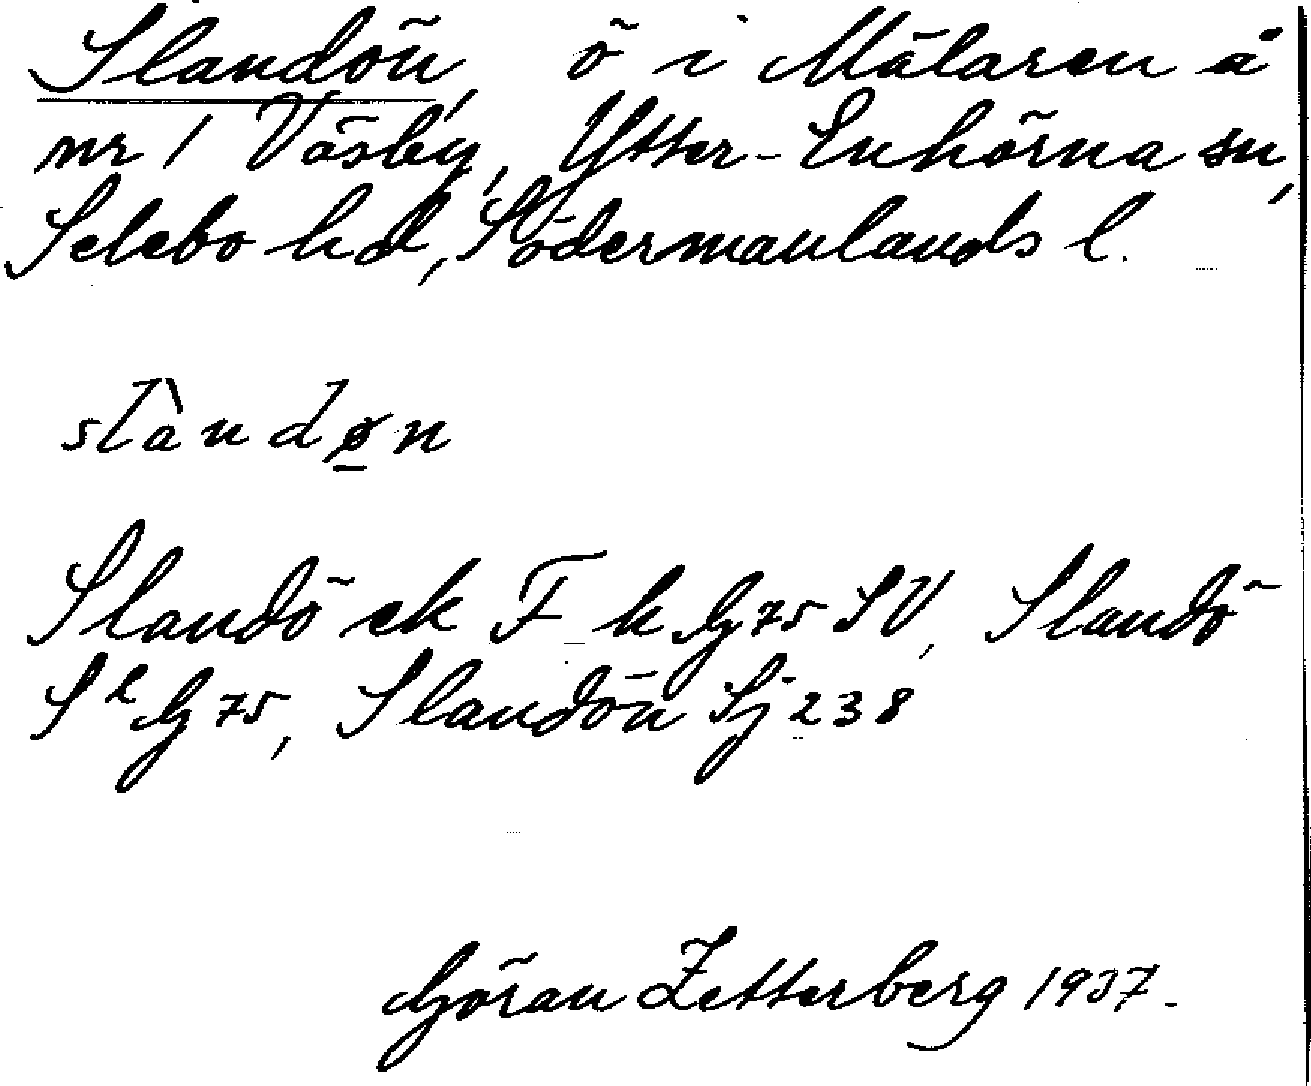 Slandön, ö i Mälaren å
nr 1 Väsby, Ytter-Enhörna sn,
Selebo hd, Södermanlands l.
slàndø̱n
Slandö ek F k G 75 SV, Slandö
Sk G 75, Slandön Sj 238
Göran Zetterberg 1937.